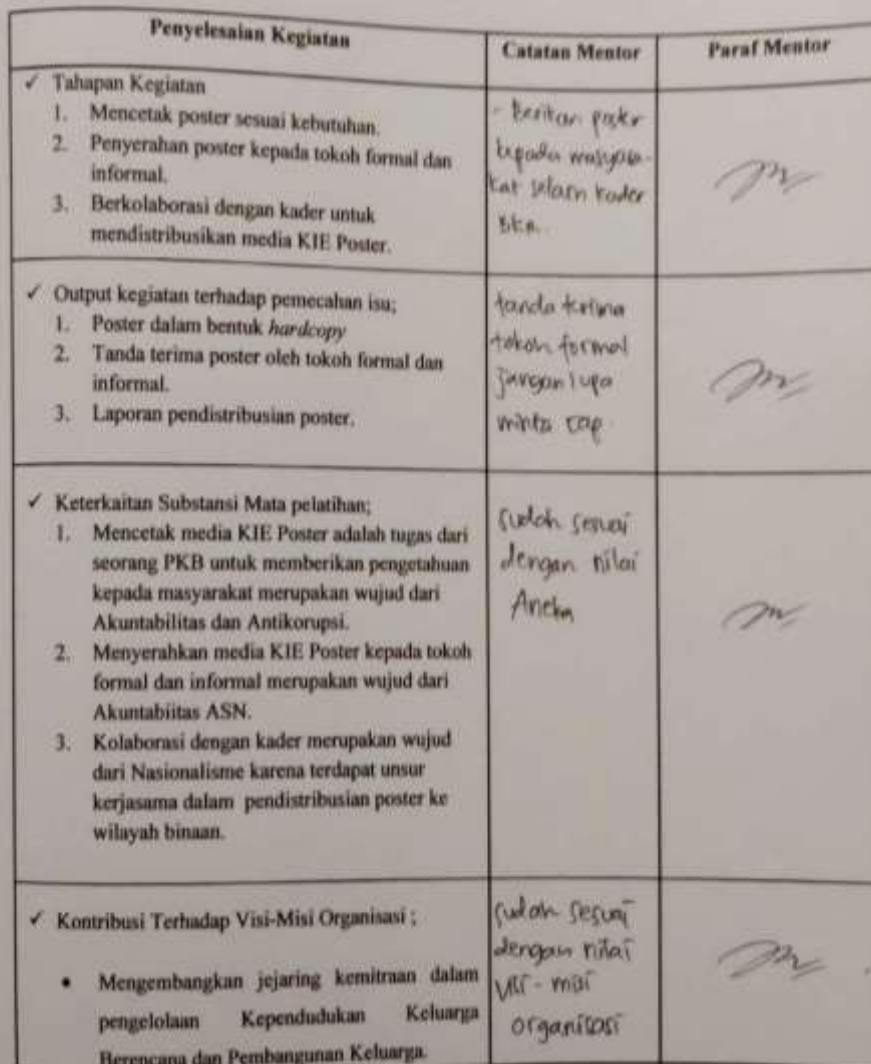 Penyelesaian Kegiatan
Catatan Mentor
Paraf Mentor
✓ Tahapan Kegiatan
1. Mencetak poster sesuai kebutuhan.
2. Penyerahan poster kepada tokoh formal dan
informal.
3. Berkolaborasi dengan kader untuk
mendistribusikan media KIE Poster.
- Berikan poster
kepada masyara-
kat selain kader
✓ Output kegiatan terhadap pemecahan isu;
1. Poster dalam bentuk hardcopy
2. Tanda terima poster oleh tokoh formal dan
informal.
3. Laporan pendistribusian poster.
tanda terima
tokoh formal
jangan lupa
minta cap.
✓ Keterkaitan Substansi Mata pelatihan;
1. Mencetak media KIE Poster adalah tugas dari
seorang PKB untuk memberikan pengetahuan
kepada masyarakat merupakan wujud dari
Akuntabilitas dan Antikorupsi.
2. Menyerahkan media KIE Poster kepada tokoh
formal dan informal merupakan wujud dari
Akuntabiitas ASN.
3. Kolaborasi dengan kader merupakan wujud
dari Nasionalisme karena terdapat unsur
kerjasama dalam pendistribusian poster ke
wilayah binaan.
sudah sesuai
dengan nilai
Aneka
✓ Kontribusi Terhadap Visi-Misi Organisasi ;
• Mengembangkan jejaring kemitraan dalam
pengelolaan Kependudukan Keluarga
Berencana dan Pembangunan Keluarga.
sudah sesuai
dengan nilai
visi - misi
organisasi